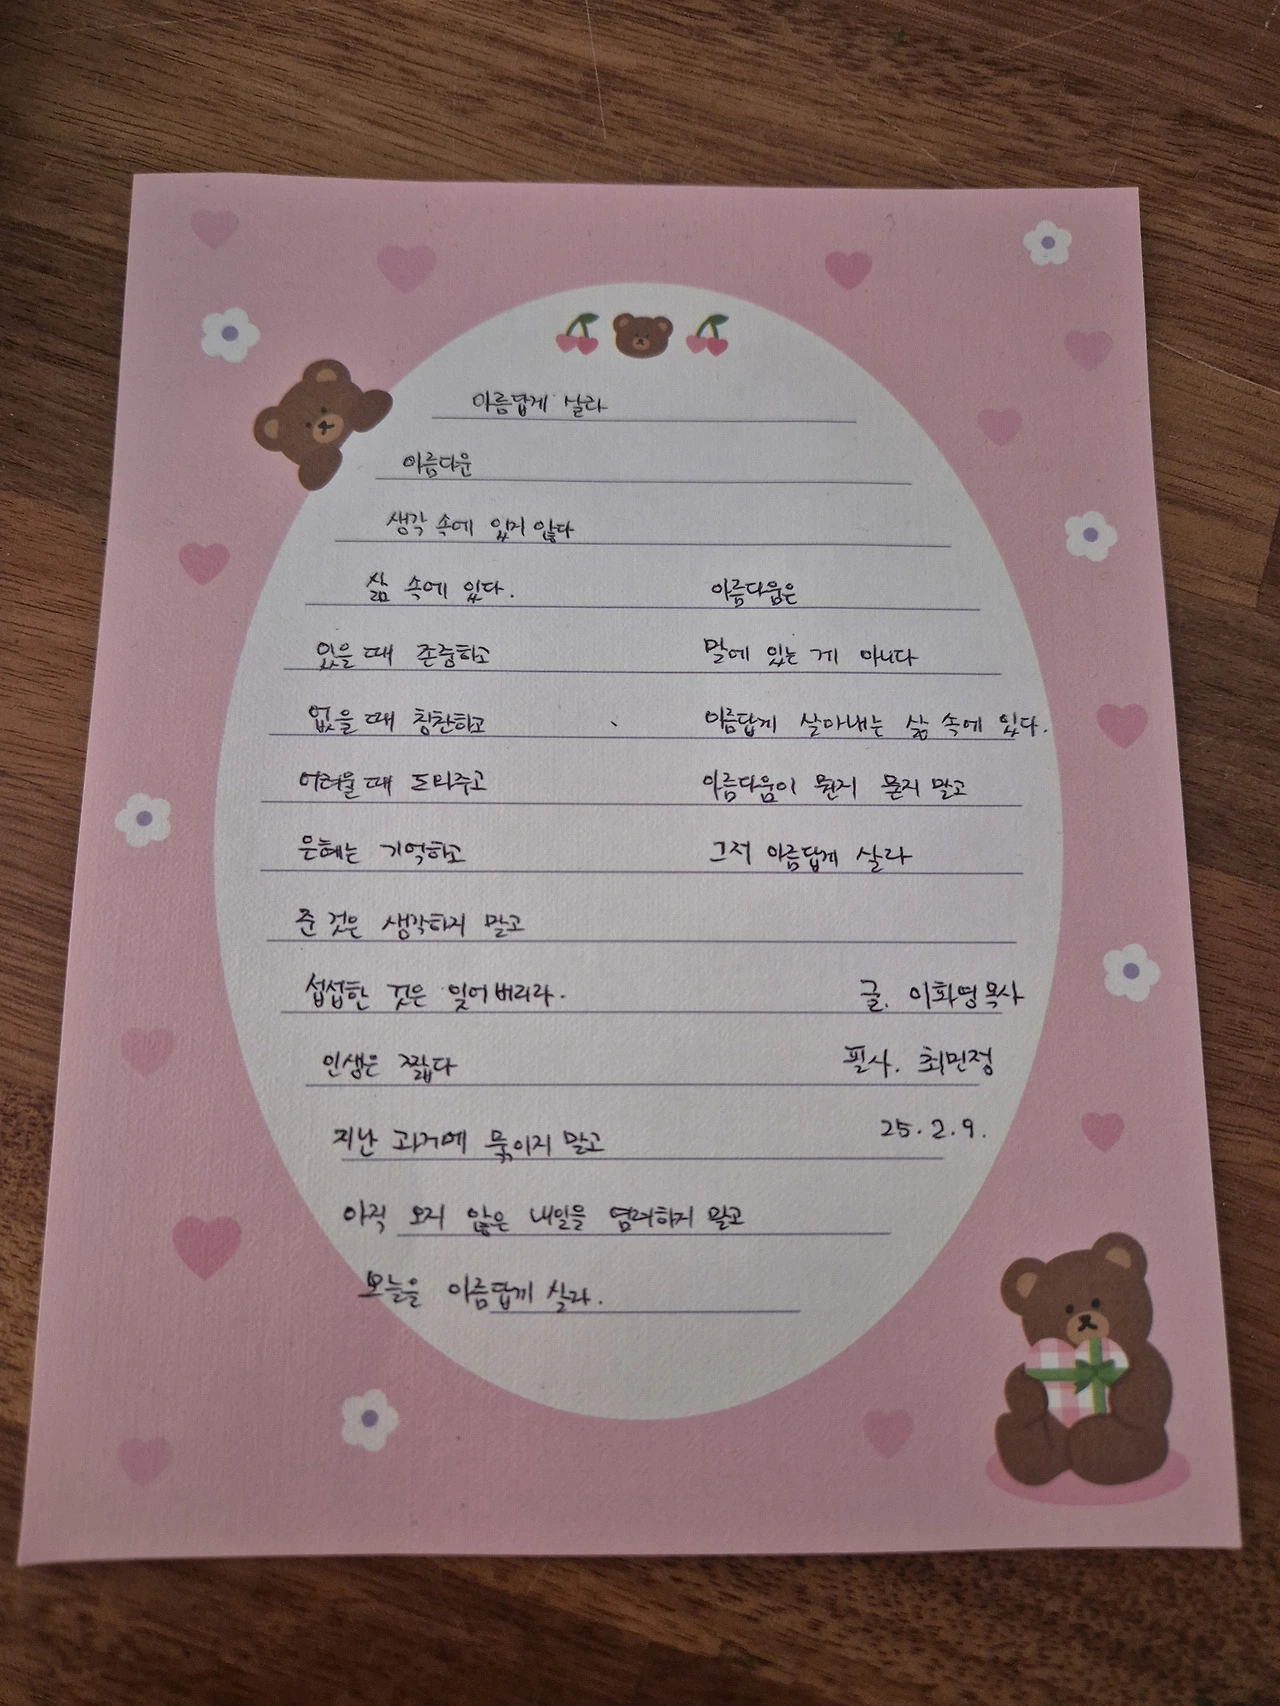 아름답게 살라
아름다운
생각 속에 있지 않다
삶 속에 있다.
있을 때 존중하고
없을 때 칭찬하고
어려울 때 도와주고
은혜는 기억하고
준 것은 생각하지 말고
섭섭한 것은 잊어버리라.
인생은 짧다
지난 과거에 묶이지 말고
아직 오지 않은 내일을 염려하지 말고
오늘을 아름답게 살라.
아름다움은
말에 있는 게 아니다
아름답게 살아내는 삶 속에 있다.
아름다움이 뭔지 묻지 말고
그저 아름답게 살라
글. 이화영목사
필사. 최민정
25.2.9.